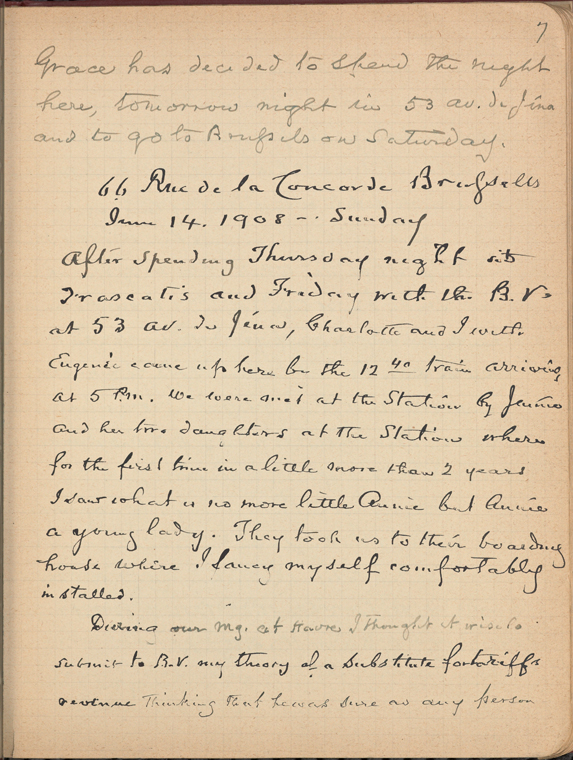 7
Grace has decided to spend the night
here, tomorrow night in 53 av. de Jéna
and to go to Brussels on Saturday.
66 Rue de la Concorde Brussells
June 14. 1908 - Sunday
After spending Thursday night at
Frascatis and Friday with the B.V.s
at 53 av. de Jéna, Charlotte and I with
Eugenie came up here by the 12 40 train arriving
at 5 P.m. We were met at the Station by Jennie
and her two daughters at the Station where
for the first time in a little more than 2 years
I saw what is no more little Annie but Annie
a young lady. They took us to their boarding
house where I fancy myself comfortably
installed.
During our mg. at Havre I thought it wise to
submit to B.V. my theory of a substitute for tariff
revenue Thinking that he was sure as any person